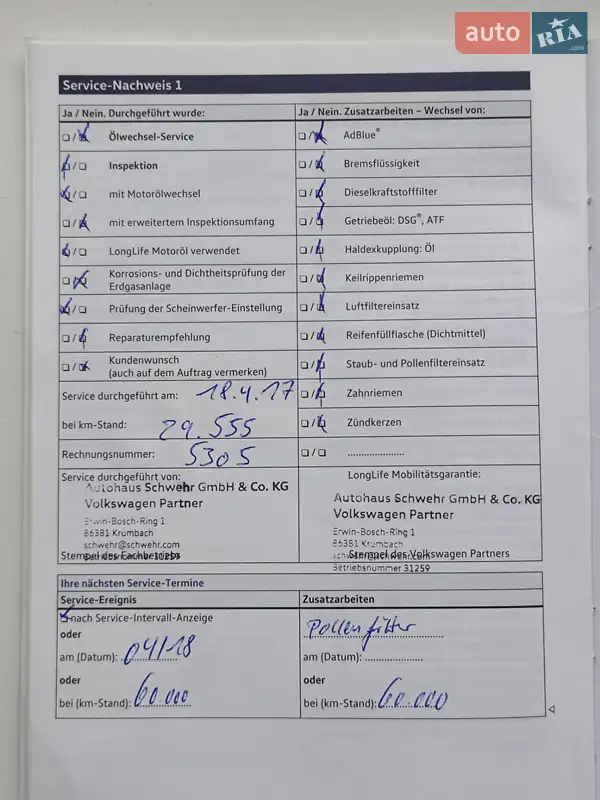 auto RIA .com
Service-Nachweis 1
Ja / Nein. Durchgeführt wurde:
Ja / Nein. Zusatzarbeiten – Wechsel von:
Ölwechsel-Service
AdBlue®
Inspektion
Bremsflüssigkeit
mit Motorölwechsel
Dieselkraftstofffilter
mit erweitertem Inspektionsumfang
Getriebeöl: DSG®, ATF
LongLife Motoröl verwendet
Haldexkupplung: Öl
Korrosions- und Dichtheitsprüfung der
Erdgasanlage
Keilrippenriemen
Prüfung der Scheinwerfer-Einstellung
Luftfiltereinsatz
Reparaturempfehlung
Reifenfüllflasche (Dichtmittel)
Kundenwunsch
(auch auf dem Auftrag vermerken)
Staub- und Pollenfiltereinsatz
Service durchgeführt am: 18.4.17
Zahnriemen
bei km-Stand: 29.555
Zündkerzen
Rechnungsnummer: 5305
.....................
Service durchgeführt von:
LongLife Mobilitätsgarantie:
Autohaus Schwehr GmbH & Co. KG
Volkswagen Partner
Erwin-Bosch-Ring 1
86381 Krumbach
schwehr@schwehr.com
Betriebsnummer 31259
Stempel des Fachbetriebs
Autohaus Schwehr GmbH & Co. KG
Volkswagen Partner
Erwin-Bosch-Ring 1
86381 Krumbach
schwehr@schwehr.com
Stempel des Volkswagen Partners
Betriebsnummer 31259
Ihre nächsten Service-Termine
Service-Ereignis
Zusatzarbeiten
nach Service-Intervall-Anzeige
Pollenfilter
oder
am (Datum): 04/18
am (Datum): ................
oder
oder
bei (km-Stand): 60.000
bei (km-Stand): 60.000